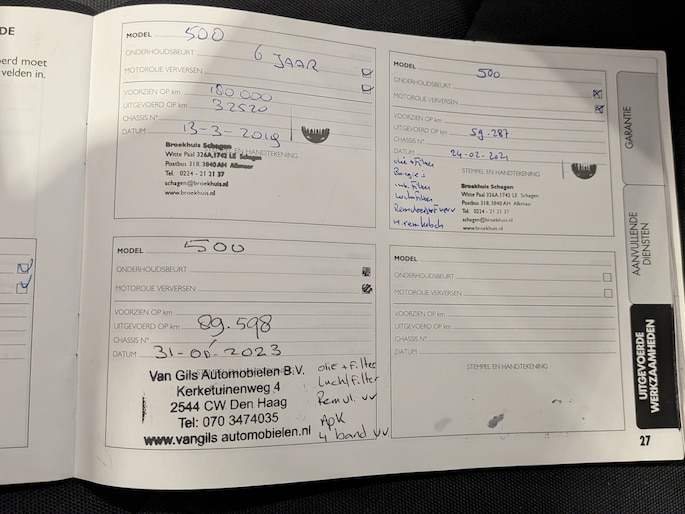 DE
erd moet
velden in.
MODEL 500
ONDERHOUDSBEURT 6 JAAR
MOTOROLIE VERVERSEN
VOORZIEN OP km 180 000
UITGEVOERD OP km 32520
CHASSIS N°
DATUM 13-3-2018
EN HANDTEKENING
Broekhuis Schagen
Witte Paal 326A, 1742 LE Schagen
Postbus 318, 3840 AH Alkmaar
Tel. 0224 - 21 21 37
schagen@broekhuis.nl
www.broekhuis.nl
MODEL 500
ONDERHOUDSBEURT
MOTOROLIE VERVERSEN
VOORZIEN OP km
UITGEVOERD OP km 59.287
CHASSIS N°
DATUM 24-02-2021
STEMPEL EN HANDTEKENING
olie + Filter
Bougie's
int. Filter
Luchtfilter
Remvloeistof verv
Broekhuis Schagen
Witte Paal 326A, 1742 LE Schagen
Postbus 318, 3840 AH Alkmaar
Tel. 0224 - 21 21 37
schagen@broekhuis.nl
www.broekhuis.nl
MODEL 500
ONDERHOUDSBEURT
MOTOROLIE VERVERSEN
VOORZIEN OP km
UITGEVOERD OP km 89.598
CHASSIS N°
DATUM 31-08-2023
Van Gils Automobielen B.V.
Kerketuinenweg 4
2544 CW Den Haag
Tel: 070 3474035
www.vangils automobielen.nl
olie + Filter
Luchtfilter
Remvl. vv
APK
4 band vv
MODEL
ONDERHOUDSBEURT
MOTOROLIE VERVERSEN
VOORZIEN OP km
UITGEVOERD OP km
CHASSIS N°
DATUM
STEMPEL EN HANDTEKENING
GARANTIE
AANVULLENDE
DIENSTEN
UITGEVOERDE
WERKZAAMHEDEN
27